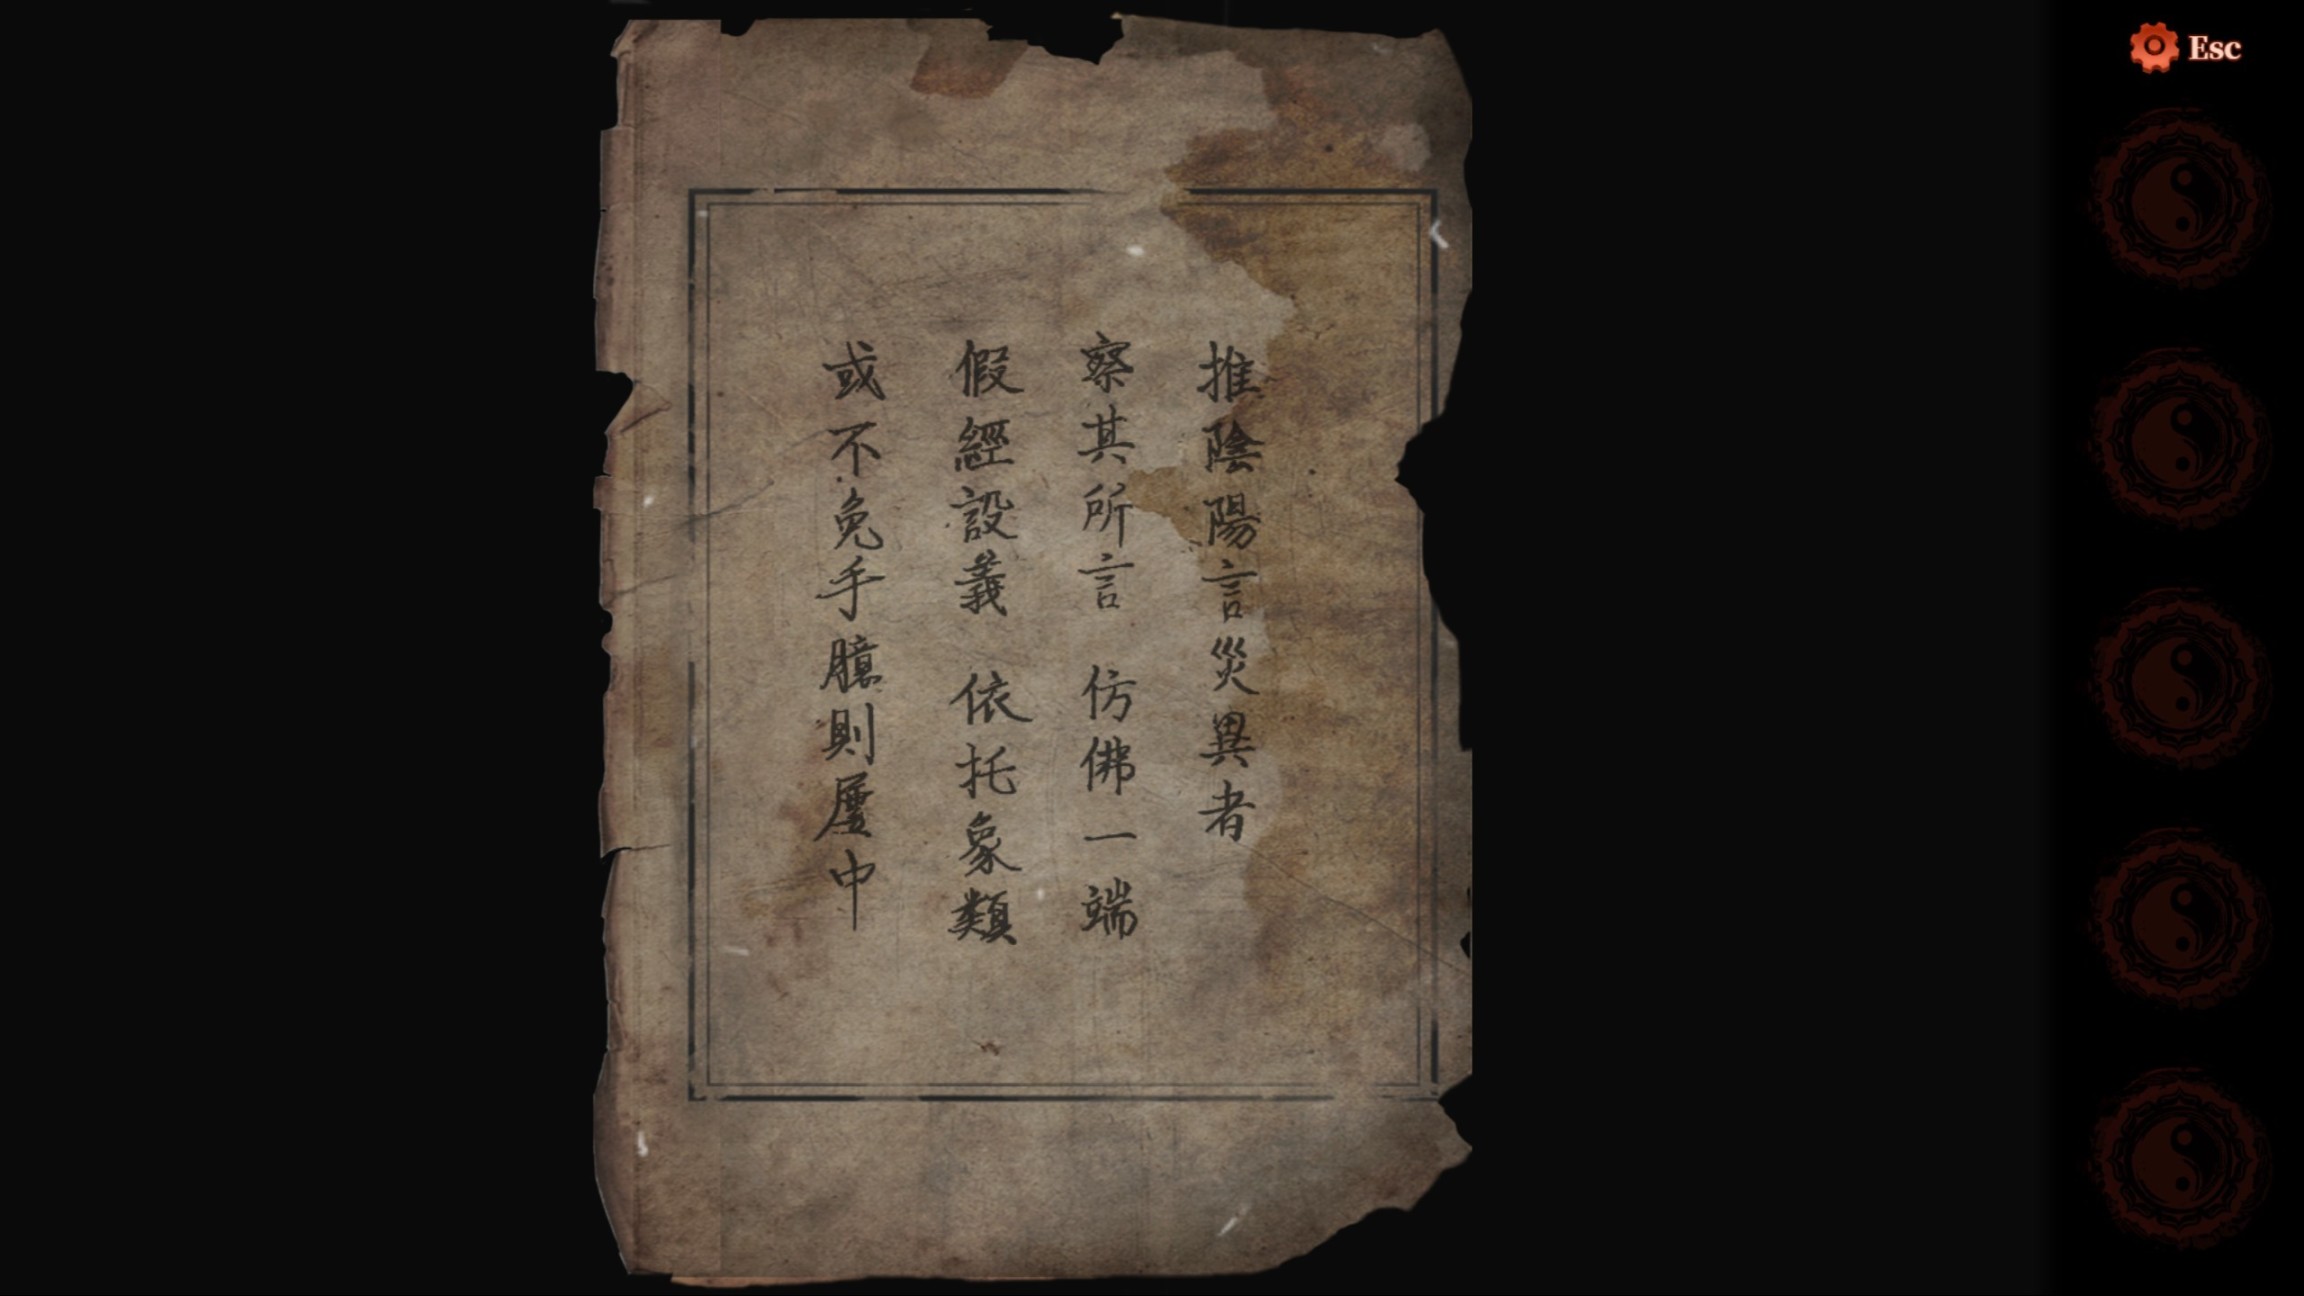 推陰陽言災異者
察其所言 仿佛一端
假經設義 依托象類
或不免手臆則屢中
Esc